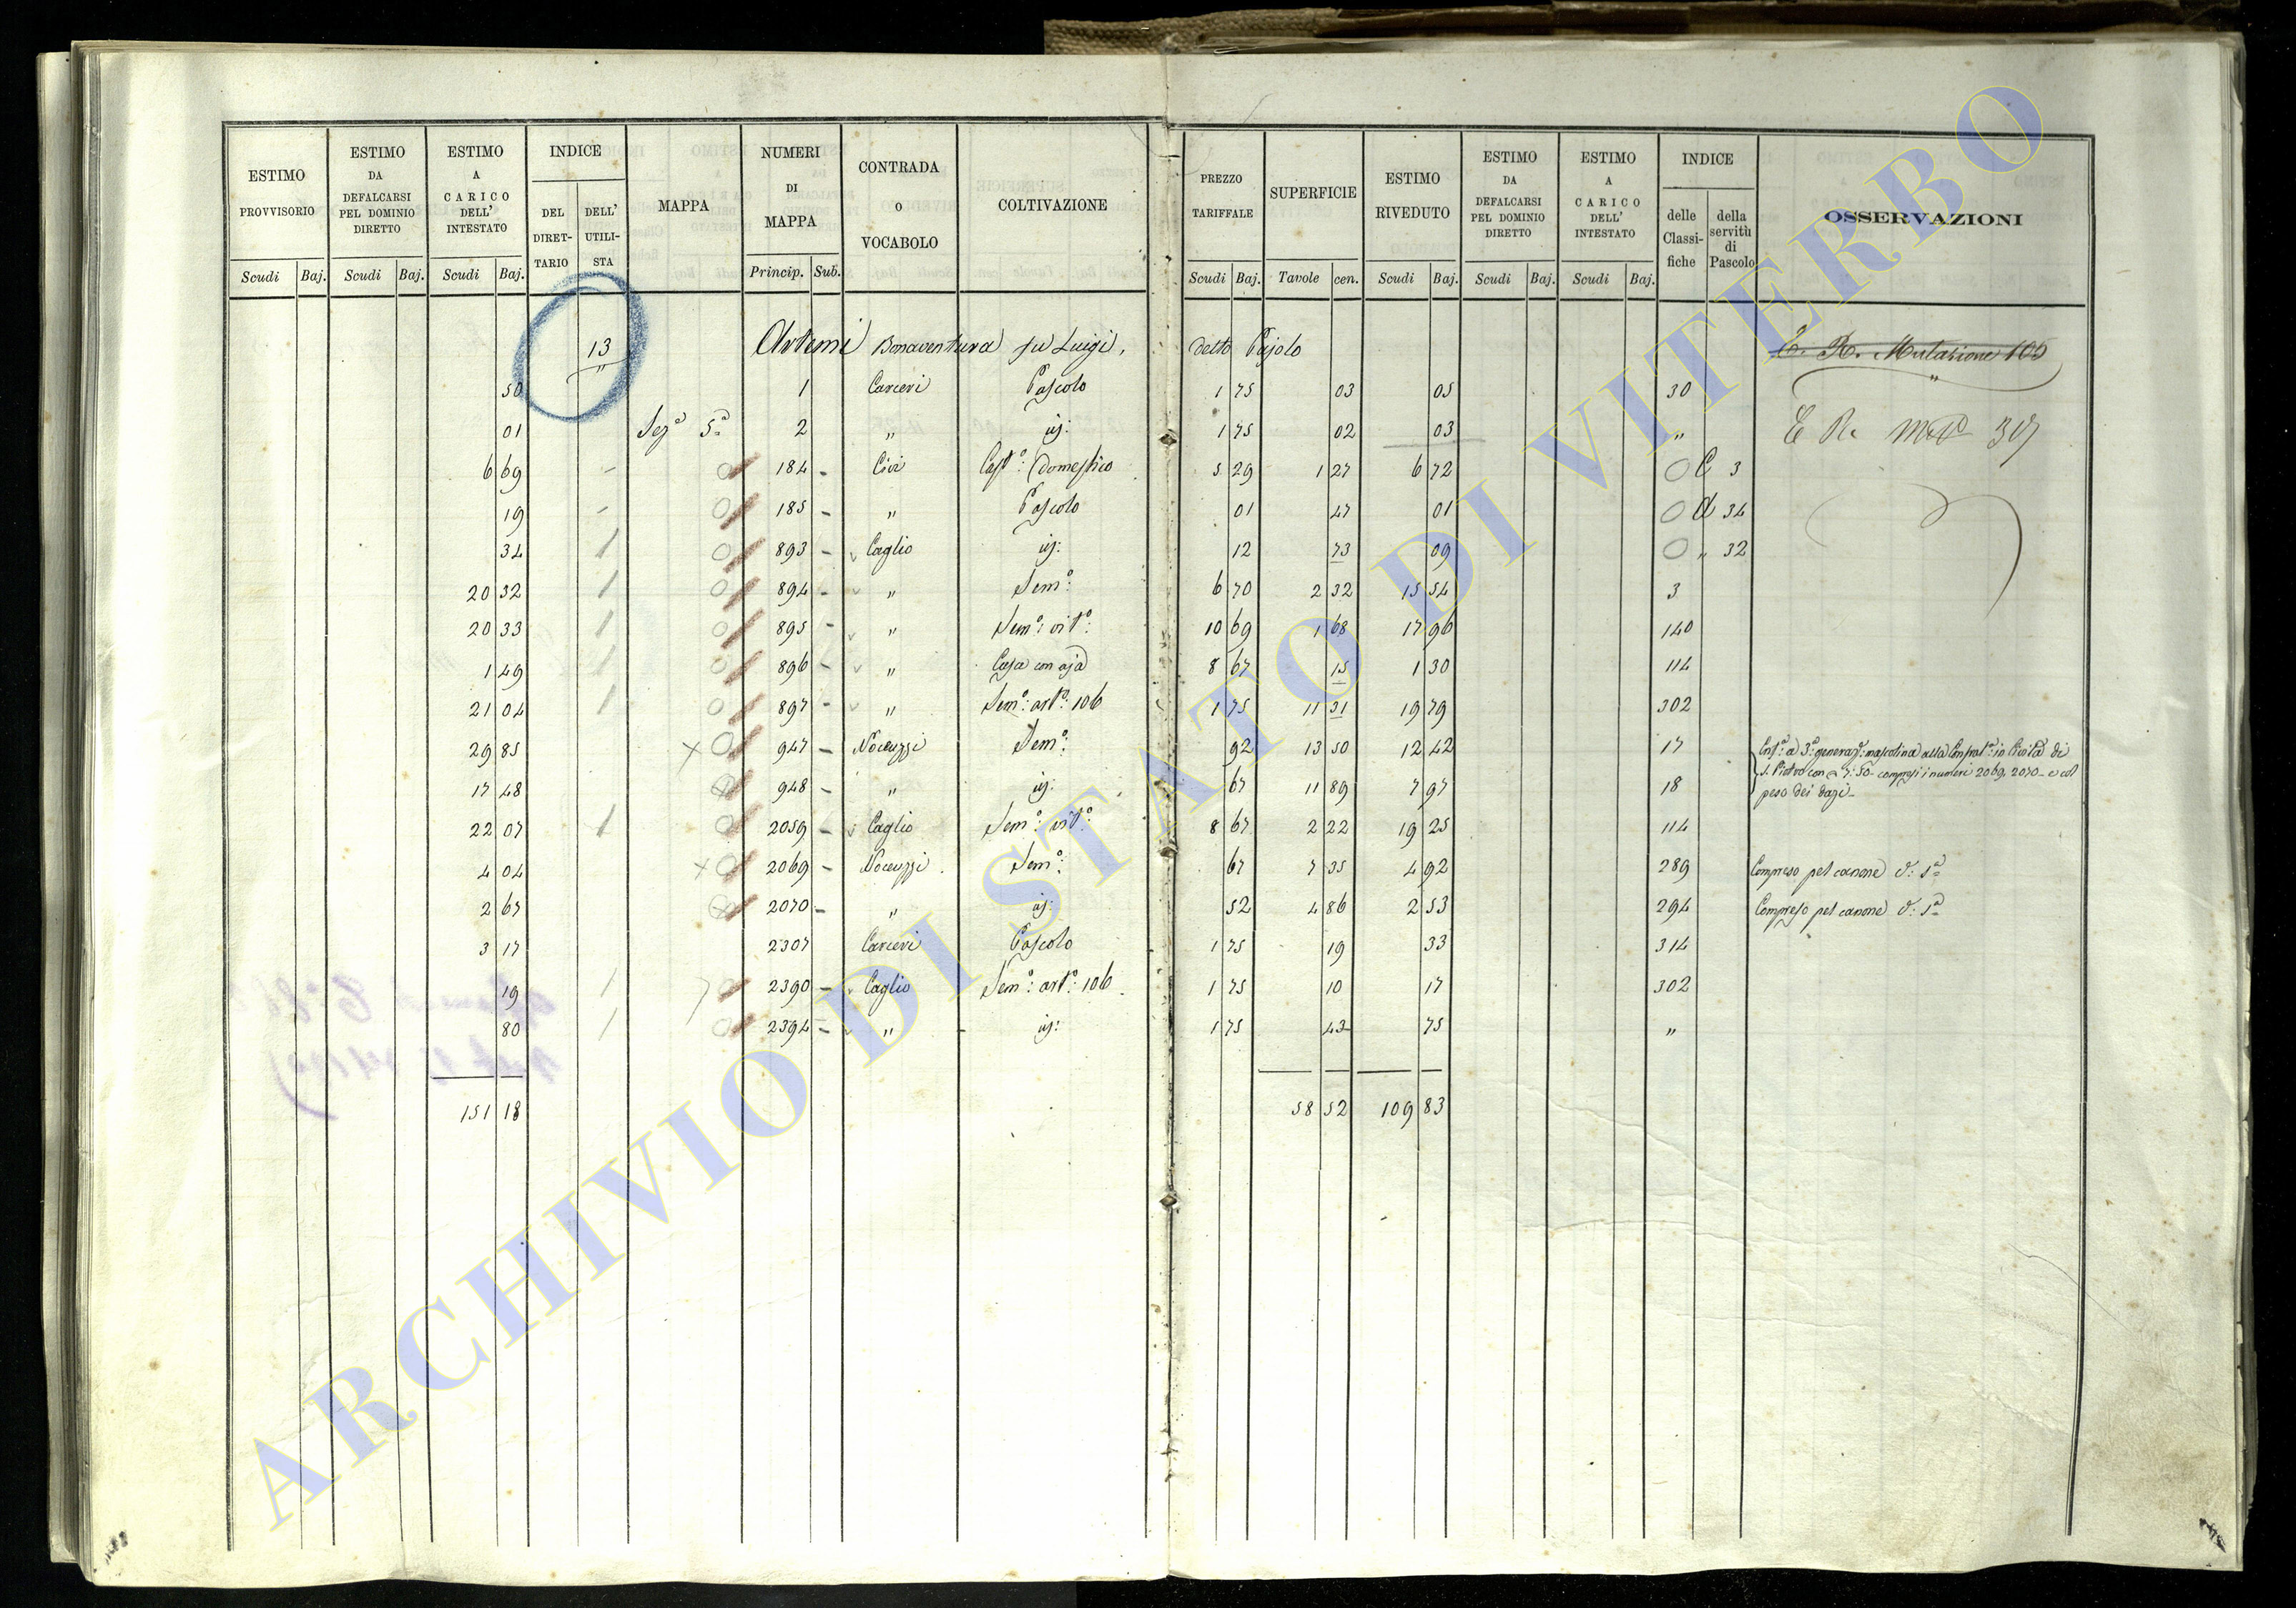 ESTIMO PROVVISORIO | ESTIMO DA DEFALCARSI PEL DOMINIO DIRETTO | ESTIMO A CARICO DELL' INTESTATO | INDICE DEL DIRET-TARIO | DELL' UTILI-STA | MAPPA | NUMERI DI MAPPA | CONTRADA O VOCABOLO | COLTIVAZIONE | PREZZO TARIFFALE | SUPERFICIE | ESTIMO RIVEDUTO | ESTIMO DA DEFALCARSI PEL DOMINIO DIRETTO | ESTIMO A CARICO DELL' INTESTATO | INDICE delle Classi-fiche | della servitù di Pascolo | OSSERVAZIONI
Scudi | Baj. | Scudi | Baj. | Scudi | Baj. | Princip. | Sub. | Scudi | Baj. | Tavole | cen. | Scudi | Baj. | Scudi | Baj. | Scudi | Baj.
13 Artemi Bonaventura fu Luigi, detto Pajolo E. R. Mutazione 105
50 1 Carceri Pascolo 1 75 03 05 30
01 Sezᵉ 5ª 2 " id: 1 75 02 03 " E R. 307
6 69 184 Civi Castº: domestico 5 29 1 27 6 72 C 3
19 185 " Pascolo 01 47 01 A 34
34 893 Caglio id: 12 73 09 " 32
20 32 894 " Semº: 6 70 2 32 15 54 3
20 33 895 " Semº: vitº: 10 69 1 68 17 96 140
1 49 896 " Casa con aja 8 67 15 1 30 114
21 04 897 " Semº: artº: 106 1 75 11 31 19 79 302
29 85 947 Nocuzzi Semº: 92 13 50 12 42 17
17 48 948 " id: 67 11 89 7 97 18
Enfª a 3ª generaz: mascolina alla in Civita di
S. Pietro con 7:50 compresi i numeri 2069, 2070 e col
peso dei dazi
22 07 2059 Caglio Semº: vitº: 8 67 2 22 19 25 114
4 04 2069 Nocuzzi Semº: 67 7 35 4 92 289 Compreso pel canone d: sª
2 67 2070 " id: 52 4 86 2 53 294 Compreso pel canone d: sª
3 17 2307 Carceri Pascolo 1 75 19 33 314
19 2390 Caglio Semº: artº: 106 1 75 10 17 302
80 2394 " id: 1 75 43 75 "
151 18 58 52 109 83
ARCHIVIO DI STATO DI VITERBO